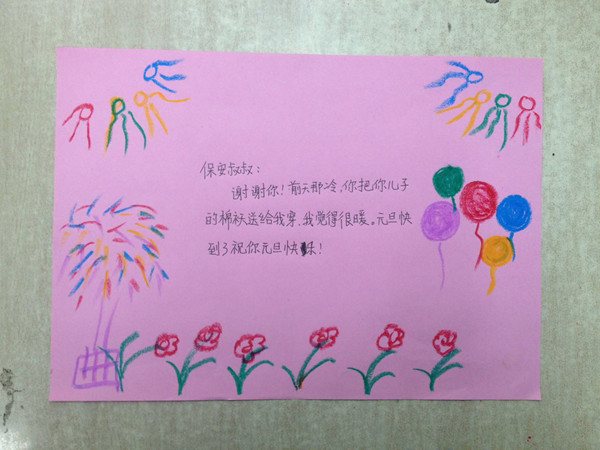 保安叔叔：
谢谢你！前天那冷，你把你儿子
的棉袄送给我穿，我觉得很暖。元旦快
到了祝你元旦快乐！